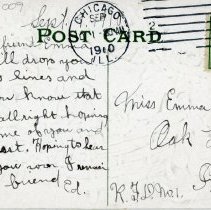 009
Sept
CHICAGO
SEP
1910
ILL.
POST CARD
friend Emma
I'll drop you
lines and
you know that
all right hoping
same of you and
rest. Hoping to hear
you soon I remain
friend Ed.
Miss Emma
Oak
R.F.D. No 1.